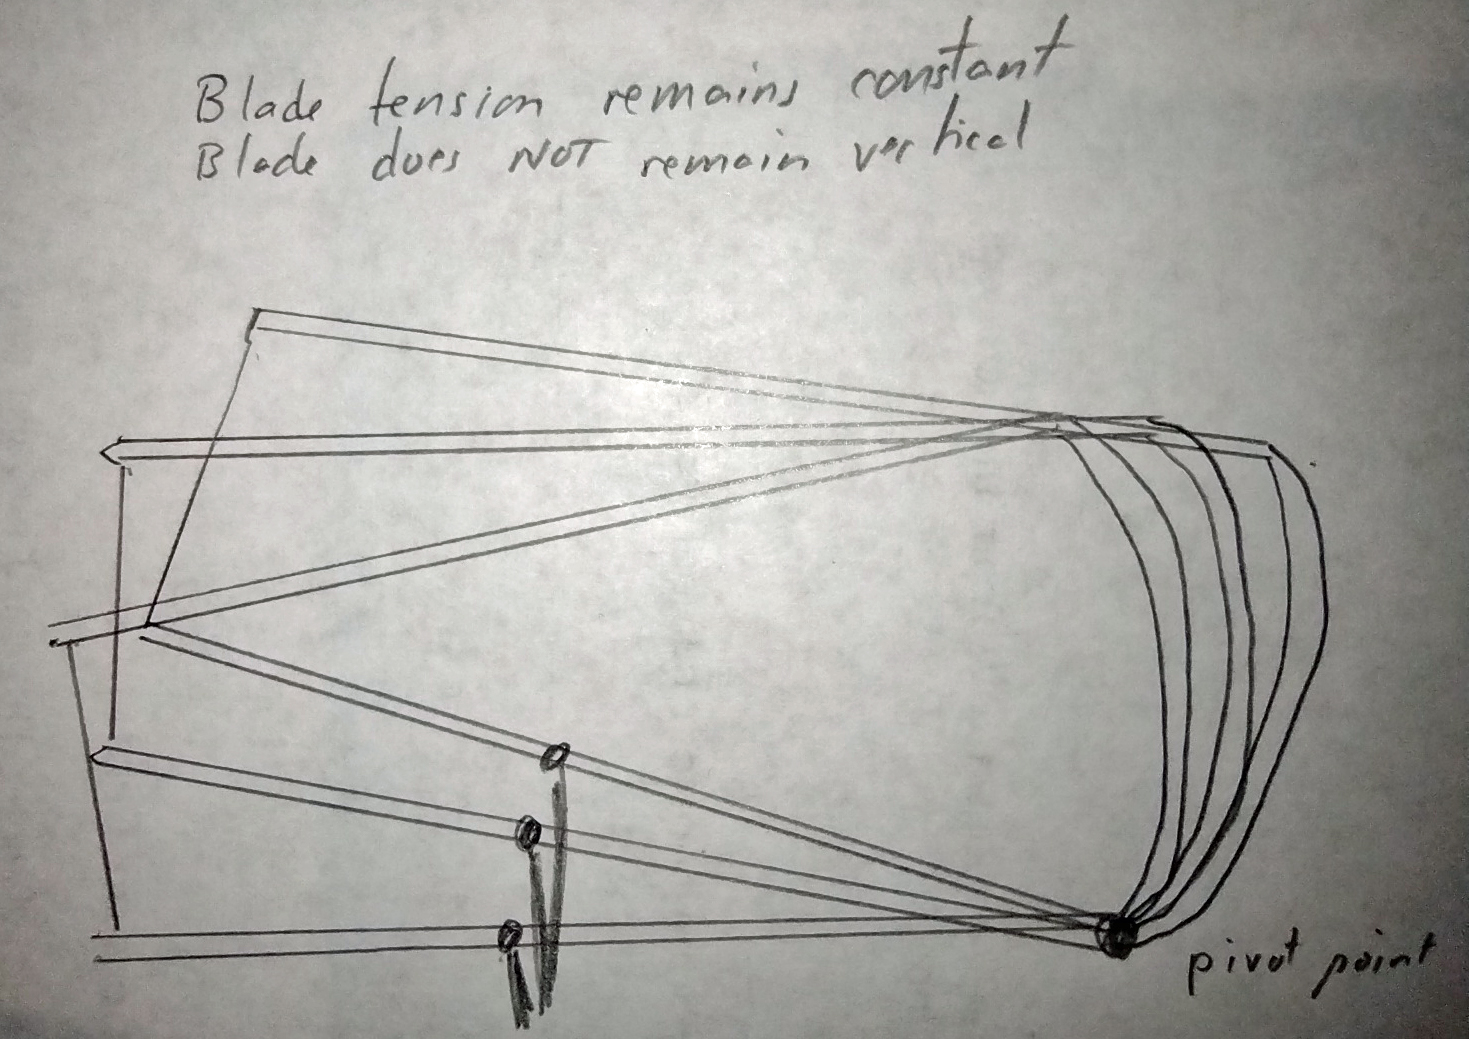 Blade tension remains constant
Blade does NOT remain vertical
pivot point